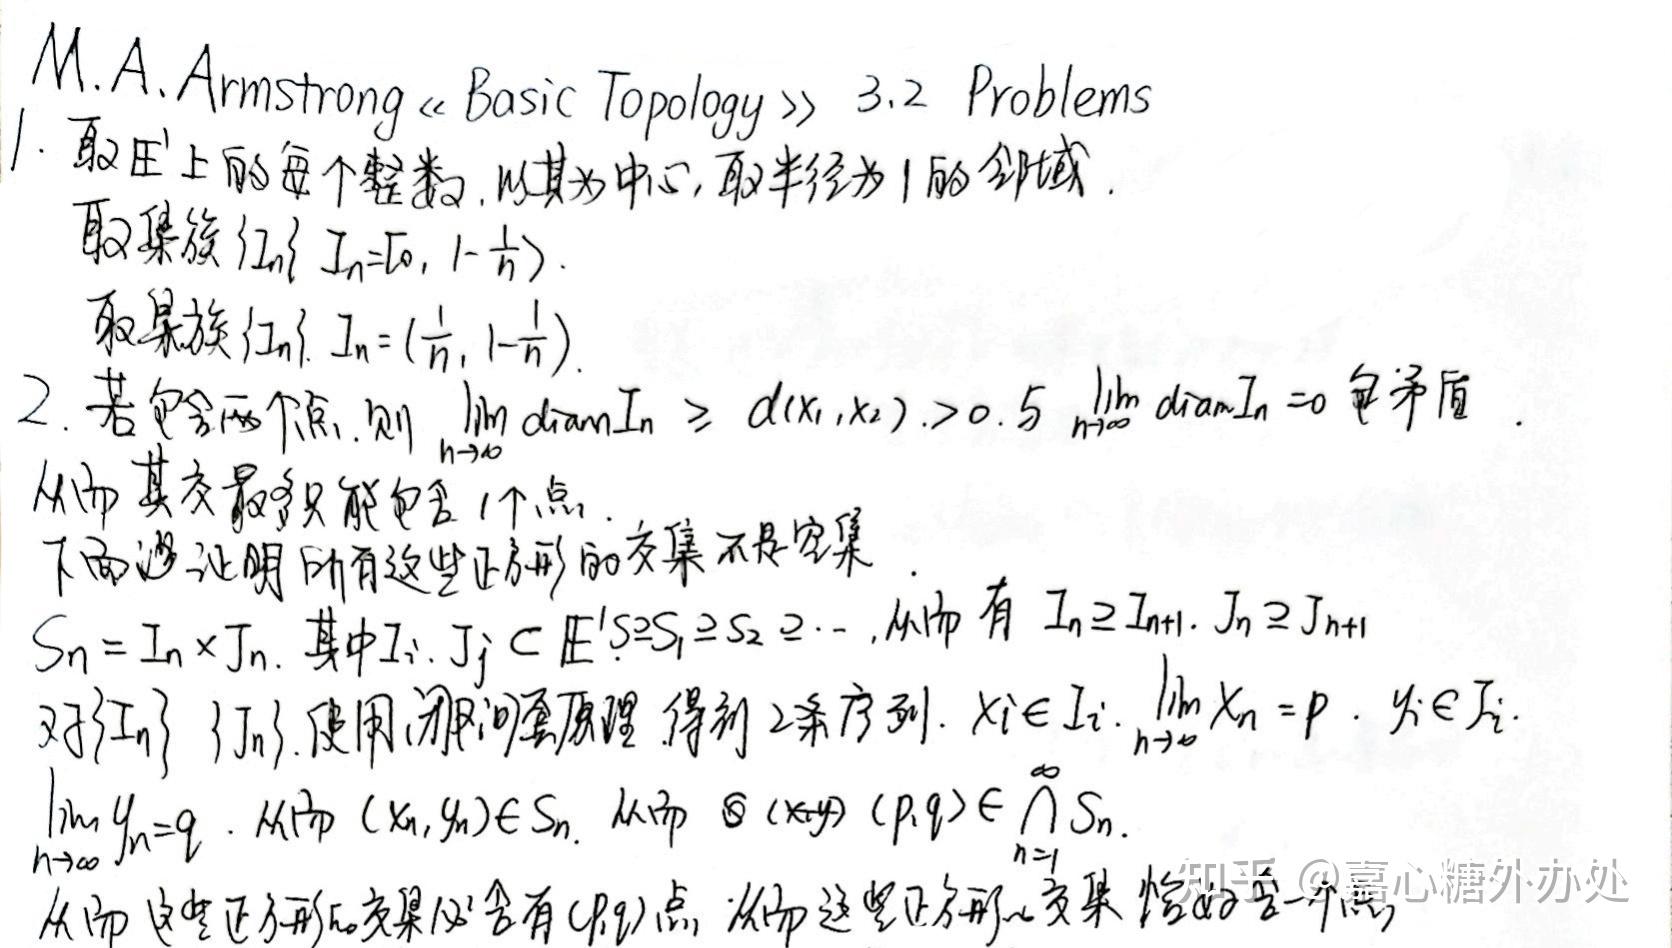 M.A.Armstrong《Basic Topology》 3.2 Problems
1. 取E¹上的每个整数,以其为中心,取半径为1的邻域.
取集族{In} In=[0, 1-1/n).
取集族{In}. In=(1/n, 1-1/n).
2. 若包含两个点,则 lim n→∞ diam In ≥ d(x₁,x₂).>0.5 lim n→∞ diam In =0 矛盾.
从而其交最多只能包含1个点.
下面 证明所有这些正方形的交集不是空集.
Sn=In×Jn. 其中Ii. Jj⊂E¹ S⊇S₁⊇S₂⊇…,从而有 In⊇In+1. Jn⊇Jn+1
对{In} {Jn}.使用闭区间套原理 得到2条序列. xi∈Ii. lim n→∞ xn=p. yi∈Ji.
lim n→∞ yn=q. 从而(xn,yn)∈Sn. 从而 (x,y) (p,q)∈∞⋂n=1 Sn.
从而这些正方形的交集必含有(p,q)点 从而这些正方形的交集恰好含一个点
知乎 @嘉心糖外办处